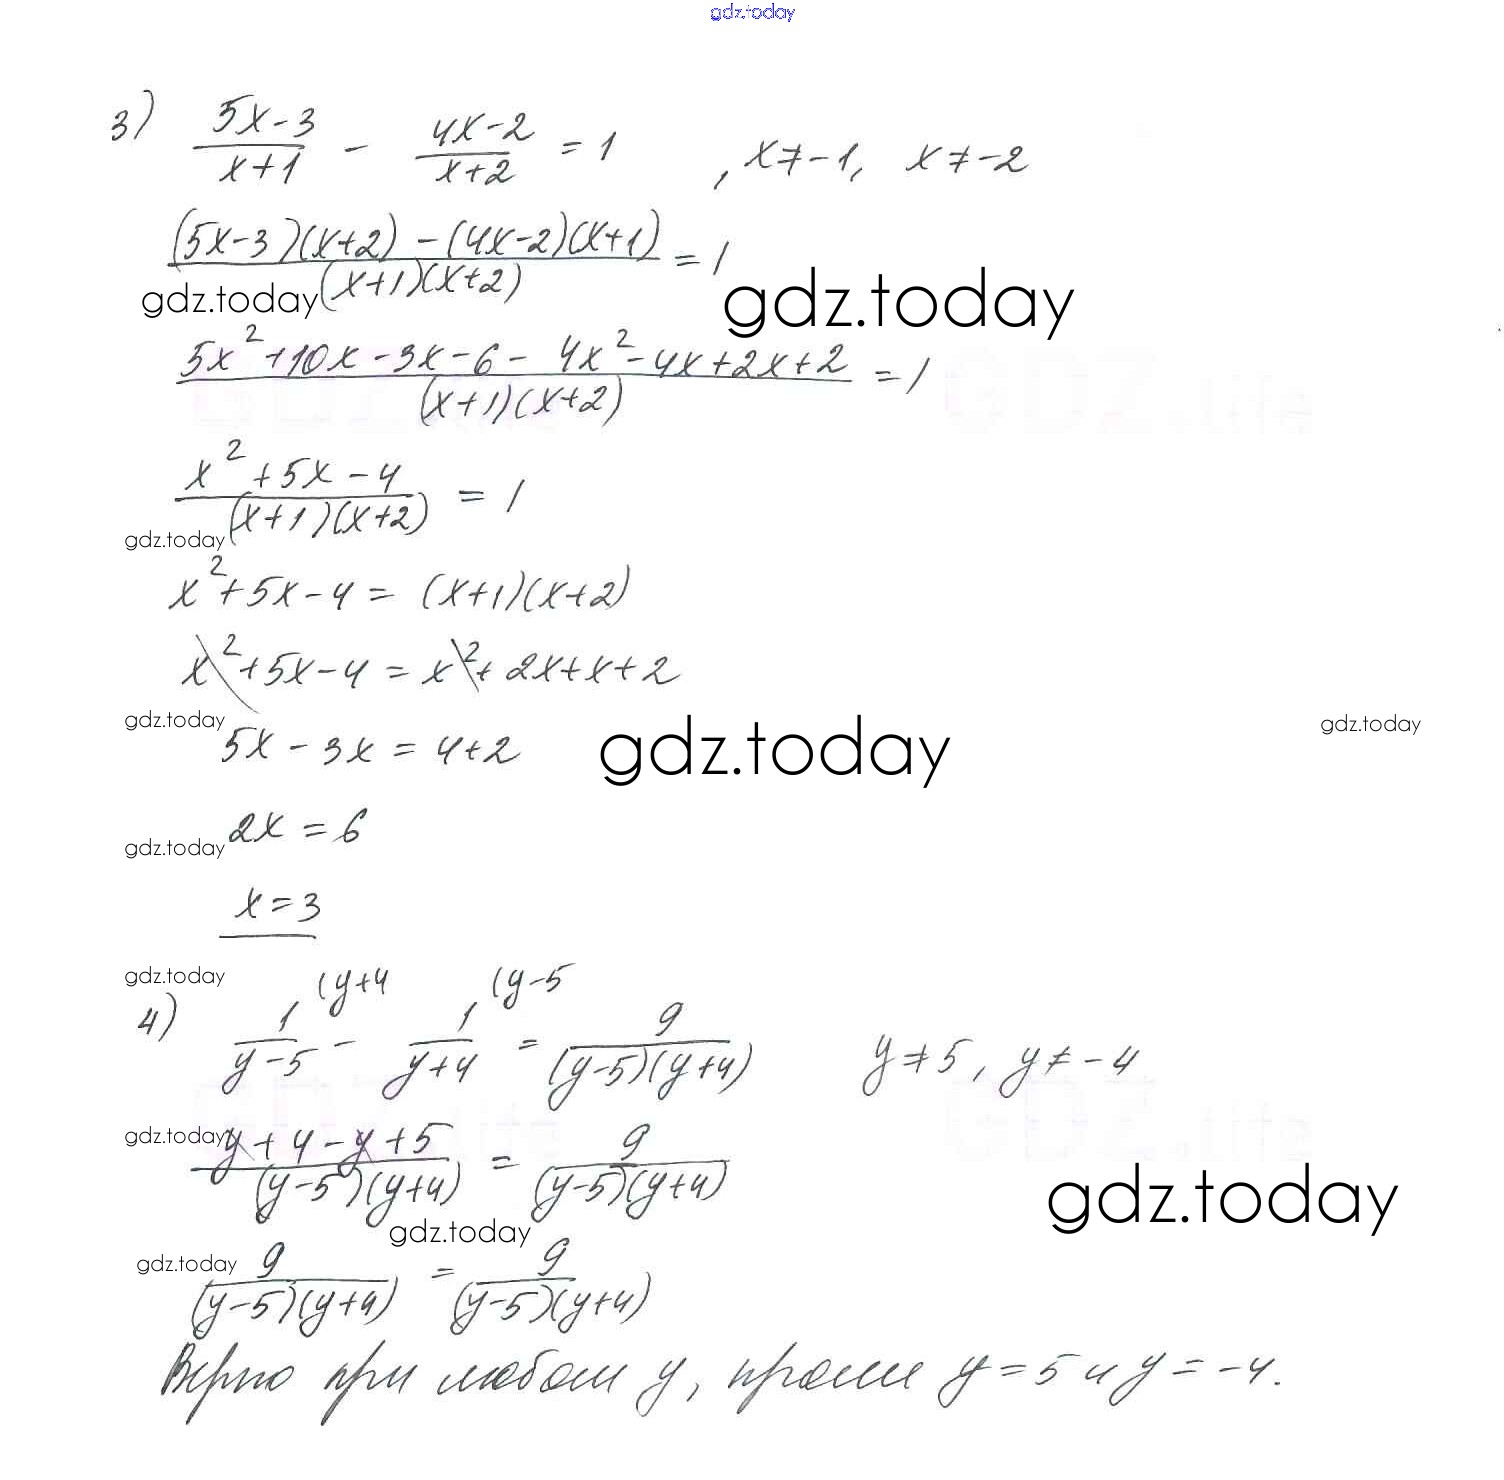 gdz.today
3) (5x-3)/(x+1) - (4x-2)/(x+2) = 1 , x≠-1, x≠-2
((5x-3)(x+2) - (4x-2)(x+1))/((x+1)(x+2)) = 1
gdz.today gdz.today
(5x²+10x-3x-6-4x²-4x+2x+2)/((x+1)(x+2)) = 1
(x²+5x-4)/((x+1)(x+2)) = 1
gdz.today
x²+5x-4 = (x+1)(x+2)
x²+5x-4 = x²+2x+x+2
gdz.today gdz.today gdz.today
5x-3x = 4+2
2x = 6
gdz.today
x=3
gdz.today
4) 1/(y-5) (y+4 - 1/(y+4) (y-5 = 9/((y-5)(y+4)) y≠5, y≠-4
gdz.today
(y+4-y+5)/((y-5)(y+4)) = 9/((y-5)(y+4))
gdz.today gdz.today
gdz.today
9/((y-5)(y+4)) = 9/((y-5)(y+4))
Верно при любом y, кроме y=5 и y=-4.